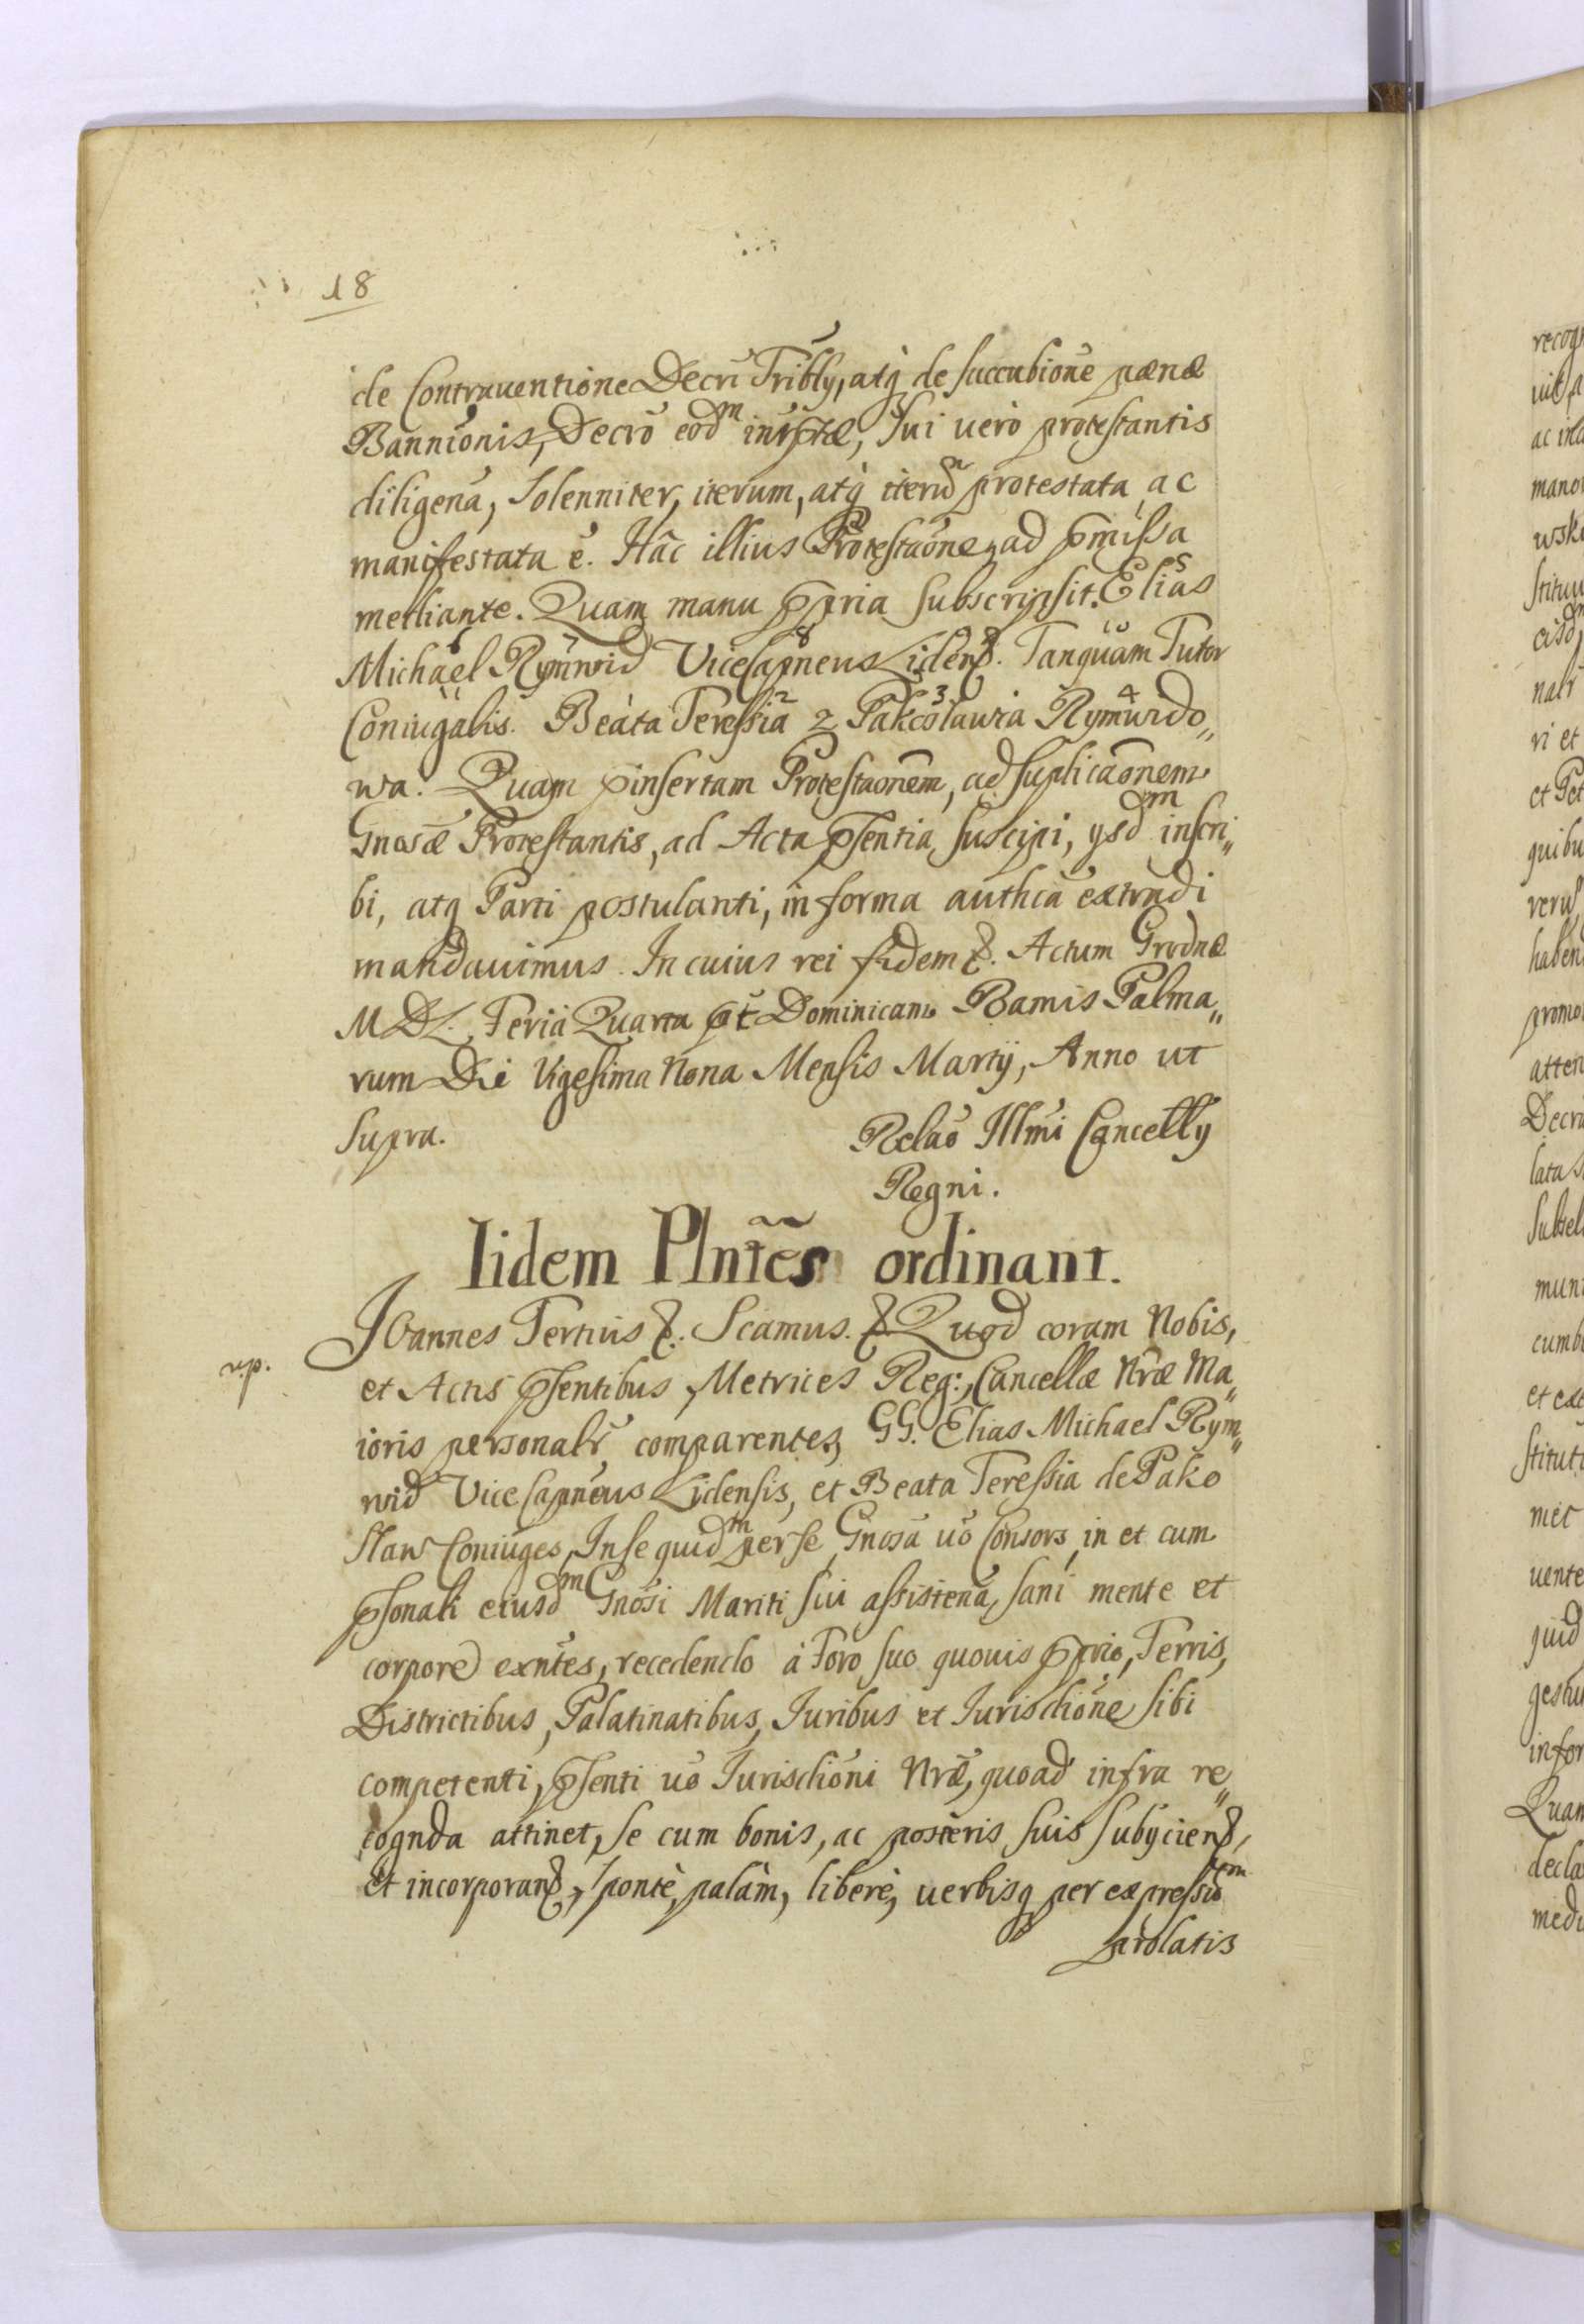 18
de Contrauentione Decrī Tribly, atq̀ de succubione pænæ
Bannionis, Decrō eodm insptæ, Sui uerò protestantis
diligena, Solenniter, iterum, atq̀ iterū protestata ac
manifestata ē. Hāc illius Protestaōne ad pmissa
mediante. Quam manu ppria subscripsit. Elias
Michael Rymwid ViceCapneus Lidens. Tanquam Tutor
Coniugalis. Beata Teressia z Pakcoslawia Rymwido„
wa. Quam pinsertam Protestaonēm, ad suplicaōnem
Gnosæ Protestantis, ad Acta psentia suscipi, ysdm inscri„
bi, atq Parti postulanti, in forma authca extradi
mandauimus. In cuius rei fidem &. Actum Grodnæ
M D L. Feria Quarta pt Dominicam Ramis Palma„
rum Die Vigesima Nona Mensis Martij, Anno ut
supra.
Relaō Illmi Cancelly
Regni.
Iidem Plntēs ordinant.
Joannes Tertius &. Scamus. & Quod coram Nobis,
n.p.
et Actis psentibus, Metrices Reg:, Cancellæ Nræ Ma„
ioris personalr comparentes, GG. Elias Michael Rym„
wid ViceCapneus Lidensis, et Beata Teressia de Pako
slaw Coniuges, Inse quidm per se, Gnosa uō Consors, in et cum
psonali eiusdm Gnosi Mariti sui assistena, sani mente et
corpore exntes, recedendo à Foro suo quouis pprio, Terris,
Districtibus, Palatinatibus, Juribus et Jurisdione sibi
competenti, psenti uō Jurisdioni Nræ, quoad infra re„
cognda attinet, se cum bonis, ac posteris suis subyciens,
et incorporans, spontè, palàm, liberè, uerbisq per expressum
prolatis